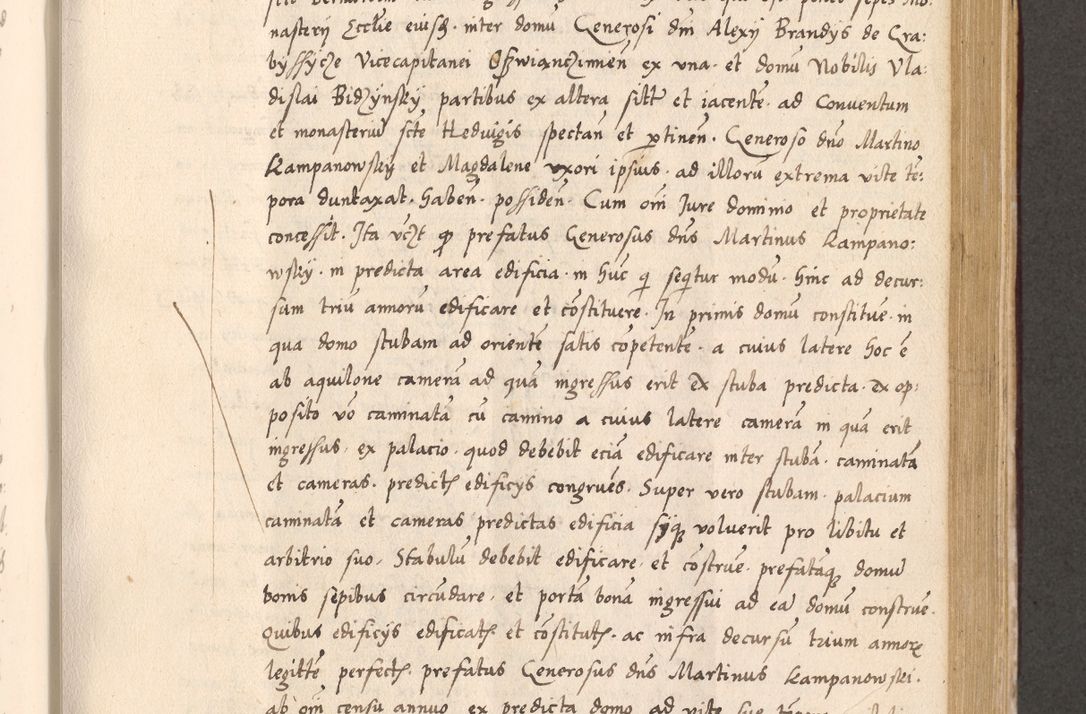 nasterij Eccłie eiusꝫ · inter domū Generosi dni Alexij Brandijs de Gra:
bijssijcze Vicecapitanei Osswianczimieñ ex vna · et domū Nobilis Vla:
dislai Bidzijnskij partibus ex altera sitt̄ et iacente · ad Conventum
et monasteriū scte Hedvigis spectañ et ptineñ · Generoso dno Martino
Kampanowskij et Magdalene vxori ipsius · ad illorū extrema vite tē:
pora duntaxat · habeñ · possideñ · Cum om̄ Jure dominio et proprietate
concessit · Ita vcꝫt ꝙ prefatus Generosus dns Martinus Kampano:
wskij · in predicta area edificia · in hūc q seqtur modū · hinc ad decur:
sum triū annorū edificare et cōstituere · In primis domū constitue · in
qua domo stubam ad orientē satis cōpetentē · a cuius latere hoc ē
ab aquilone camerā ad quā ingressus erit ex stuba predicta · Ex op:
posito vo caminatā cū camino a cuius latere camerā in quā erit
ingressus · ex palacio · quod debebit eciā edificare inter stubā · caminatā
et cameras · predictꝭ edificijs congruēs · Super vero stubam · palacium
caminatā et cameras predictas edificia sijqꝫ voluerit pro libitu et
arbitrio suo · Stabulū debebit edificare · et cōstrue · prefatāqꝫ domū
bonis sepibus circūdare · et portā bonā ingressui ad eā domū construe ·
Quibus edificijs edificatꝭ et cōstitutꝭ · ac infra decursū trium annoꝝ
legittē perfectꝭ · prefatus Generosus dns Martinus Kampanowski ·
ab om̄ censu annuo ex predicta domo ad vite sue